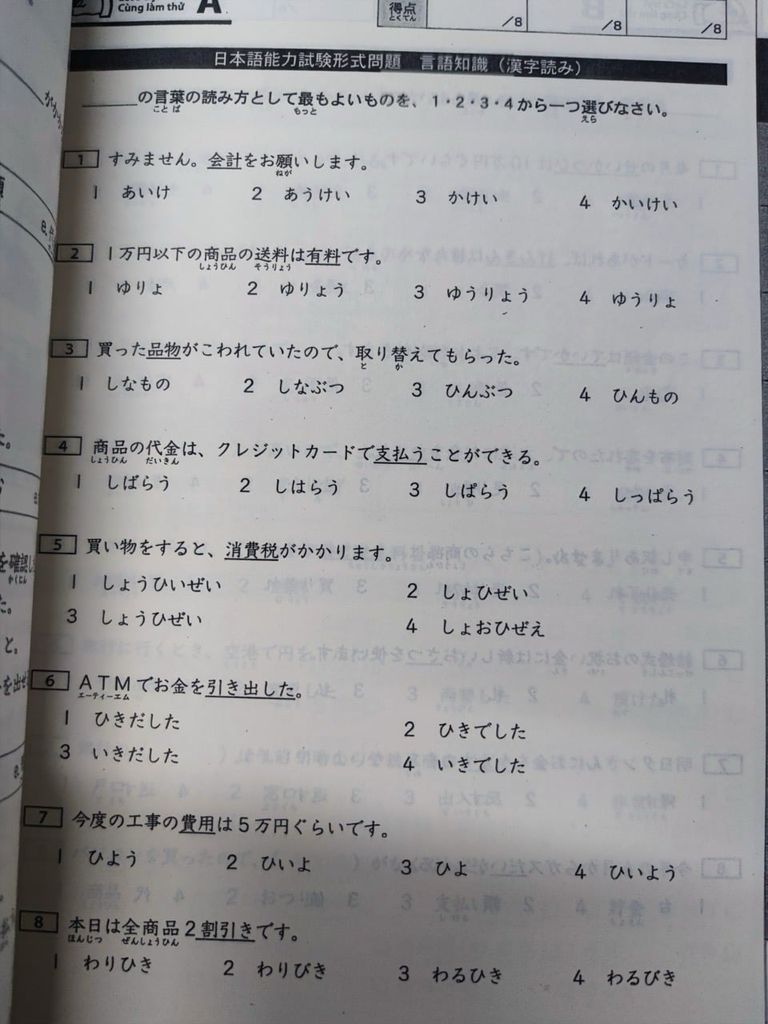 Cùng làm thử A
得点
とくてん
/8 /8 /8
日本語能力試験形式問題 言語知識(漢字読み)
＿＿＿の言葉の読み方として最もよいものを、1・2・3・4から一つ選びなさい。
ことば もっと えら
1 すみません。会計をお願いします。
ねが
1 あいけ 2 あうけい 3 かけい 4 かいけい
2 1万円以下の商品の送料は有料です。
しょうひん そうりょう
1 ゆりょ 2 ゆりょう 3 ゆうりょう 4 ゆうりょ
3 買った品物がこわれていたので、取り替えてもらった。
と か
1 しなもの 2 しなぶつ 3 ひんぶつ 4 ひんもの
4 商品の代金は、クレジットカードで支払うことができる。
しょうひん だいきん
1 しばらう 2 しはらう 3 しぱらう 4 しっぱらう
5 買い物をすると、消費税がかかります。
1 しょうひいぜい 2 しょひぜい
3 しょうひぜい 4 しょおひぜえ
6 ATMでお金を引き出した。
エーティーエム
1 ひきだした 2 ひきでした
3 いきだした 4 いきでした
7 今度の工事の費用は5万円ぐらいです。
1 ひよう 2 ひいよ 3 ひよ 4 ひいよう
8 本日は全商品2割引きです。
ほんじつ ぜんしょうひん
1 わりひき 2 わりびき 3 わるひき 4 わるびき